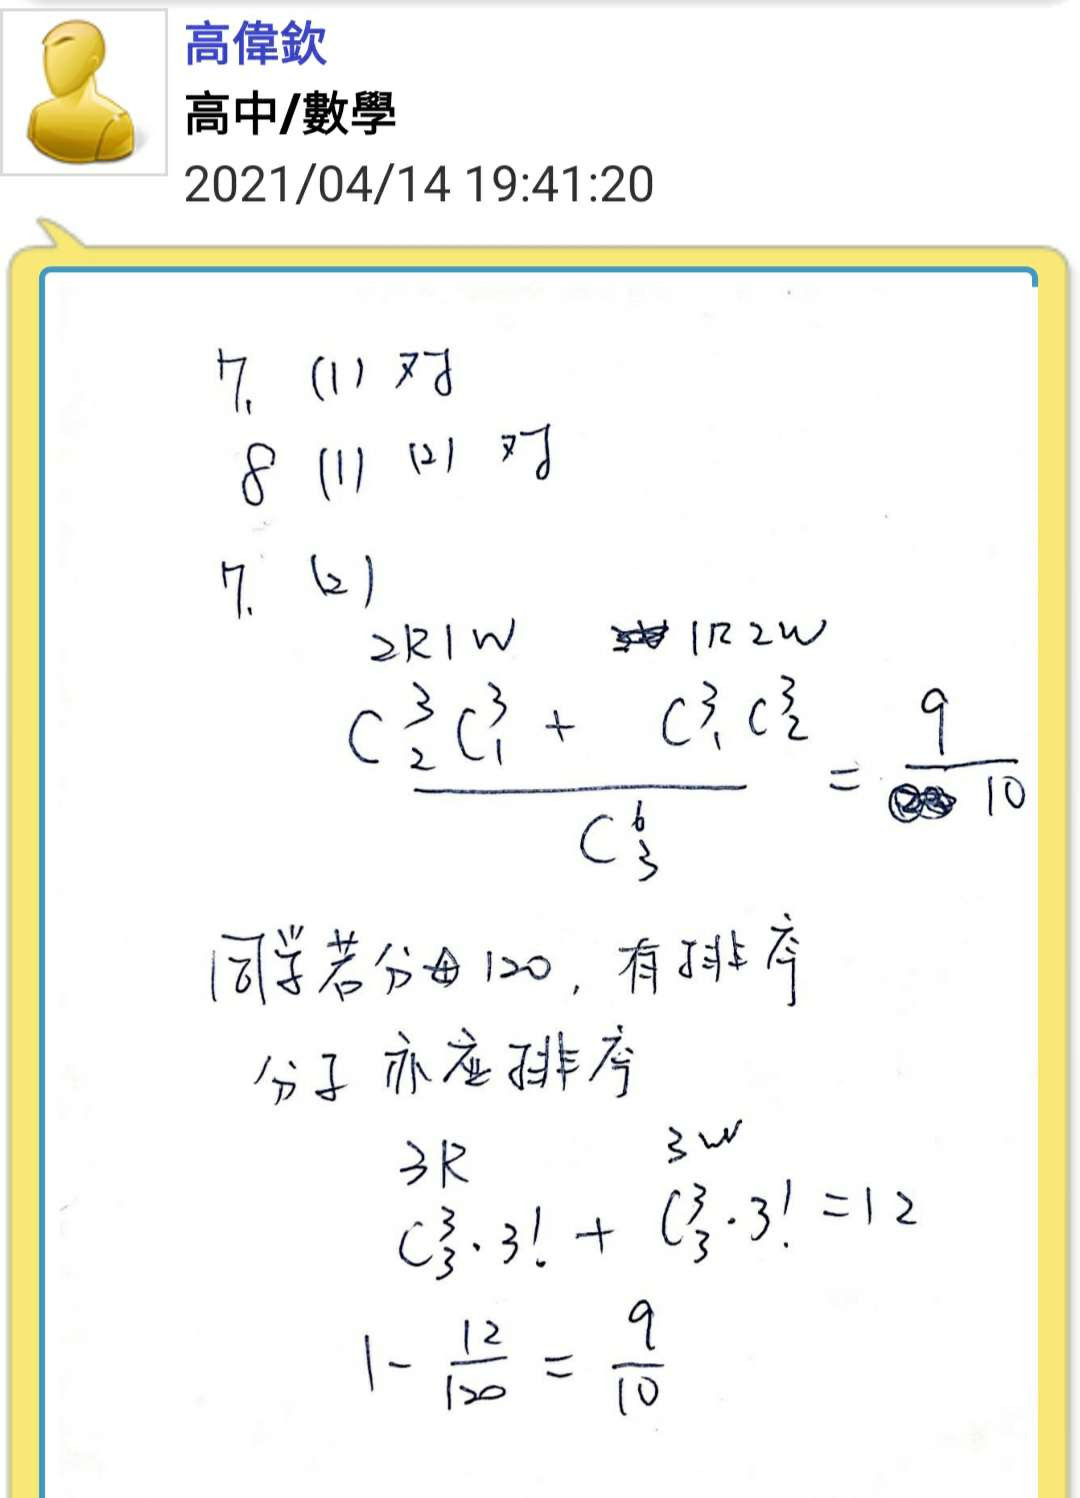 高偉欽
高中/數學
2021/04/14 19:41:20
7. (1) 对
8 (1) (2) 对
7. (2)
2R1W 1R2W
C³₂C³₁ + C³₁C³₂ / C⁶₃ = 9/10
同学若分母120, 有排序
分子亦应排序
3R 3W
C³₃·3! + C³₃·3! = 12
1 - 12/120 = 9/10